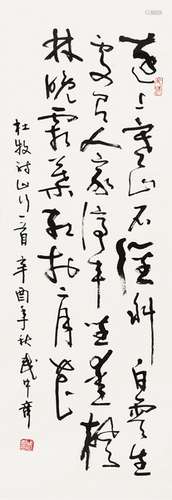 远上寒山石径斜白云生
处有人家停车坐爱枫
林晚霜叶红于二月花
杜牧诗山行一首 辛酉年秋武中奇